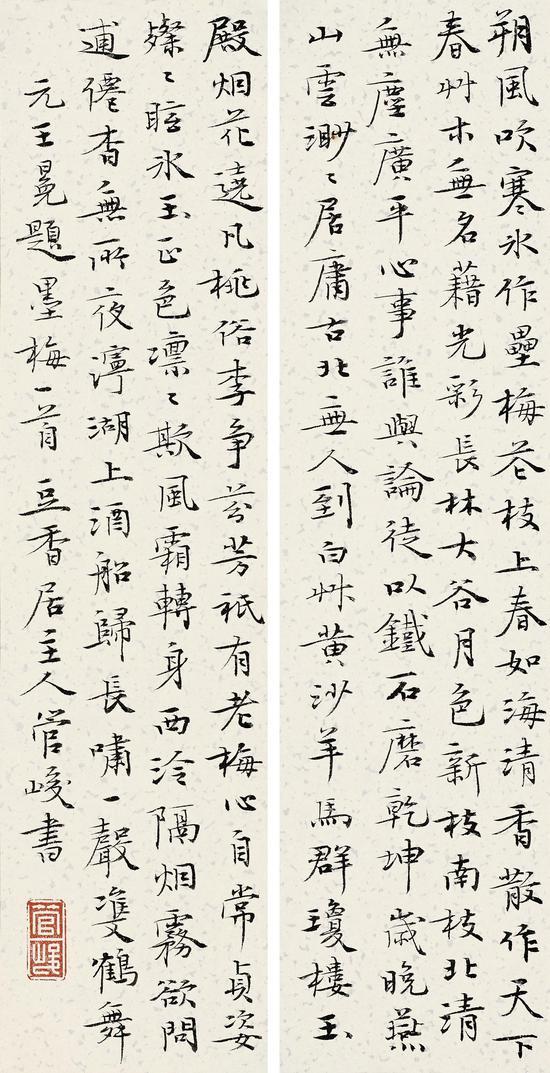 朔風吹寒氷作壘梅花枝上春如海清香散作天下
春艸木無名藉光彩長林大谷月色新枝南枝北清
無塵廣平心事誰與論徒以鐵石磨乾坤歲晚燕
山雲渺〻居庸古北無人到白艸黄沙羊馬群瓊樓玉
殿烟花遶凡桃俗李争芬芳祇有老梅心自常貞姿
燦〻眩氷玉正色凛〻欺風霜轉身西泠隔烟霧欲問
逋僊杳無所夜渟湖上酒船歸長嘯一聲雙鶴舞
元王冕題墨梅一首 豆香居主人管峻書
管峻